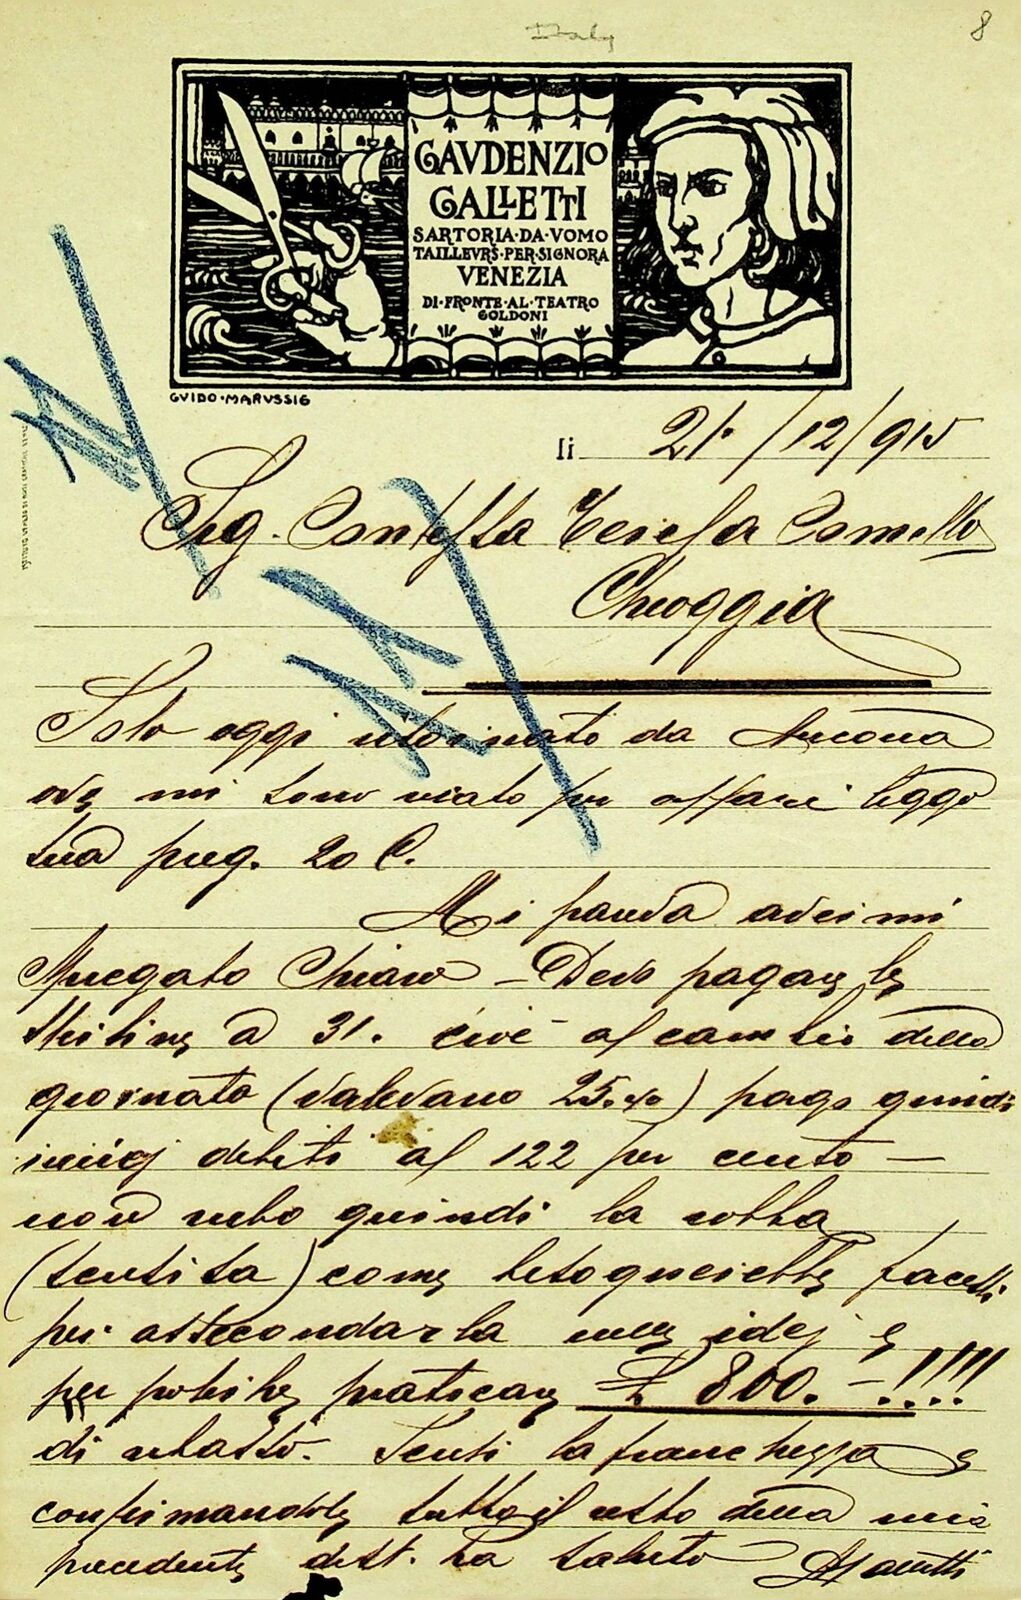 Italy
8
GAVDENZIO
GALLETTI
SARTORIA·DA·VOMO
TAILLEVRS·PER·SIGNORA
VENEZIA
DI·FRONTE·AL·TEATRO
GOLDONI
GVIDO·MARVSSIG
li 21·/12/915
Sig. Contessa Teresa Comello
Chioggia
Solo oggi ritornato da Ancona
ove mi sono recato per affari leggo
sua preg. 20 C.
Mi pareva avermi
spiegato Chiaro – Devo pagare le
Sterline a 31. cioè al cambio della
giornata (valevano 25.) pago quindi
miei debiti al 122 per cento —
non vedo quindi la
(sentita) come bisognerebbe facessi
per assecondarla idej e
per poterle praticare £ 800. – !!!!
di ribasso. Scusi la franchezza e
confermandole tutto il resto della mia
precedente dett. La saluto GGalletti